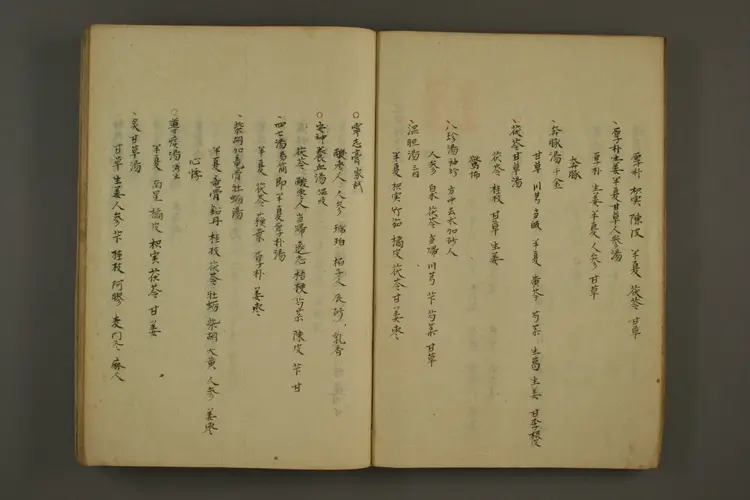 厚朴 枳実 陳皮 半夏 茯苓 甘草
、厚子朴生姜半夏甘草人参湯
厚朴 生姜 半夏 人参 甘草
奔豚
、奔豚湯 千金
甘草 川芎 当帰 半夏 黄芩 芍薬 生葛 生姜 甘李根皮
茯苓甘草湯
茯苓 桂枝 甘草 生姜
驚怖
八珍湯
人参 白朮 茯苓 当帰 川芎 芍薬 甘草
、温胆湯 三因
半夏 枳実 竹茹 橘皮 茯苓 甘 姜 棗
○寧志膏
酸棗人 人参 琥珀 柏子人 辰砂 乳香
○安神養血湯
茯苓 酸棗人 当帰 遠志 桔梗 芍薬 陳皮 甘
、四七湯 易簡 即半夏厚子朴湯
半夏 茯苓 蘇葉 厚子朴 姜 棗
、柴胡加竜骨牡蛎湯
半夏 竜骨 鉛丹 桂枝 茯苓 牡蛎 柴胡 大黄 人参 姜 棗
心悸
○導痰湯 済生
半夏 南星 橘皮 枳実 茯苓 甘 姜
、炙甘草湯
甘草 生姜 人参 桂枝 阿膠 麦門冬 麻人